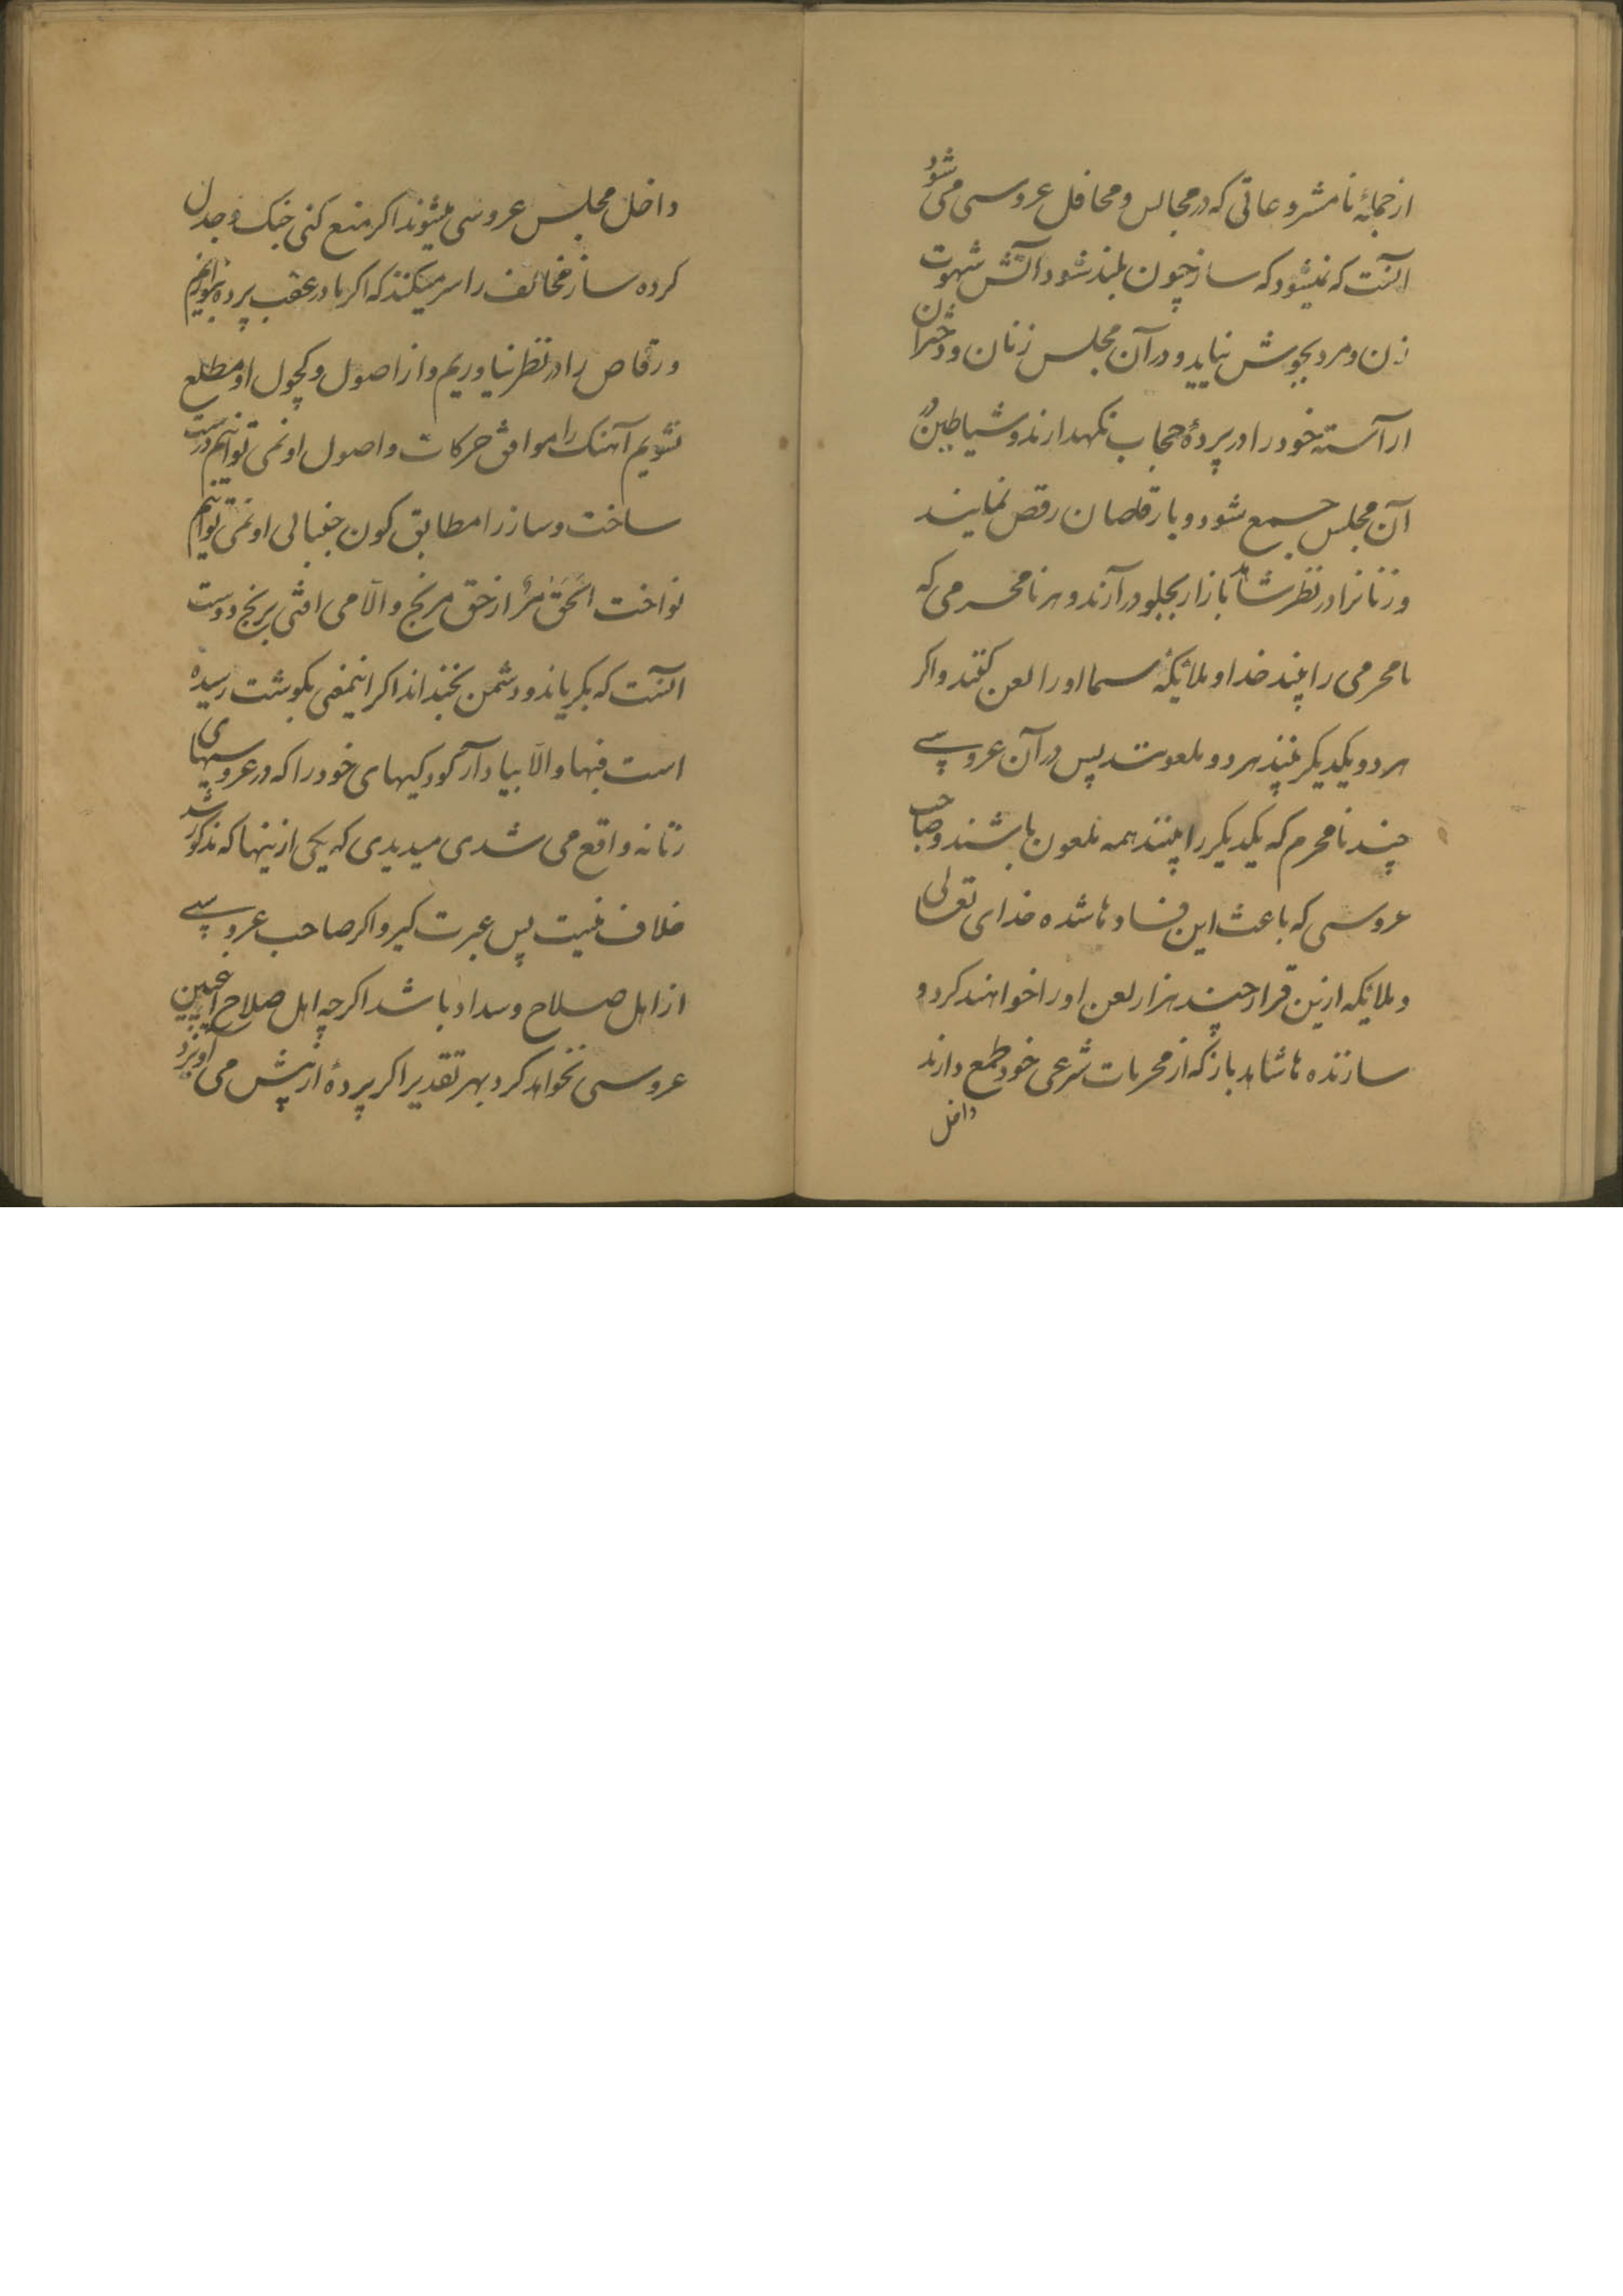 از جملهٔ نامشروعاتی که در مجالس و محافل عروسی می شود
آنست که نمیشود که ساز چون بلند شود آتش شهوت
زن و مرد بجوش نیاید و در آن مجلس زنان و دختران
آراسته خود را در پردهٔ حجاب نکهدارند و شیاطین در
آن مجلس جمع شود و با رقاصان رقص نمایند
و زنانرا در نظر شاهد بازار بجلو در آرند و هر نامحرمی که
نامحرمی را بیند خدا و ملائکهٔ سما او را لعن کنند و اکر
هر دو یکدیکر بینند هر دو ملعونند پس در آن عروسی
چند نامحرم که یکدیکر را بینند همه ملعون باشند و صاحب
عروسی که باعث این فسادها شده خدای تعالی
و ملائکه ازین قرار چند هزار لعن او را خواهند کرد و
سازنده ها شاهد باز که از محرمات شرعی خود طمع دارند
داخل
داخل مجلس عروسی میشوند اکر منع کنی جنک و جدل
کرده ساز مخالف را سر میکنند که اکر ما در عقب پرده بنوازیم
و رقاص را در نظر نیاوریم و از اصول و کچول او مطلع
نشویم آهنک را موافق حرکات و اصول او نمی توانیم درست
ساخت و ساز را مطابق کون جنبانی او نمی توانیم
نواخت الحق مر از حق مرنج و الا می افتی برنج دوست
آنست که بکریاند و دشمن بخنداند اکر اینمعنی بکوشت رسیده
است فبها و الا بیاد آر کودکیهای خود را که در عروسیهای
زنانه واقع می شدی میدیدی که یکی ازینها که مذکور شد
خلاف نیست پس عبرت کیر و اکر صاحب عروسی
از اهل صلاح و سداد باشد اکرچه اهل صلاح اینچنین
عروسی نخواهد کرد بهر تقدیر اکر پردهٔ از پیش می آویزد